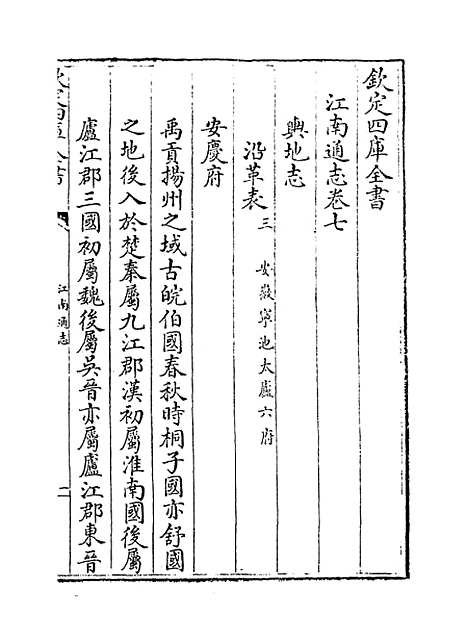 欽定四庫全書
江南通志卷七
輿地志
沿革表三 安徽寧池太廬六府
安慶府
禹貢揚州之域古皖伯國春秋時桐子國亦舒國
之地後入於楚秦屬九江郡漢初屬淮南國後屬
廬江郡三國初屬魏後屬吳晉亦屬廬江郡東晉
江南通志